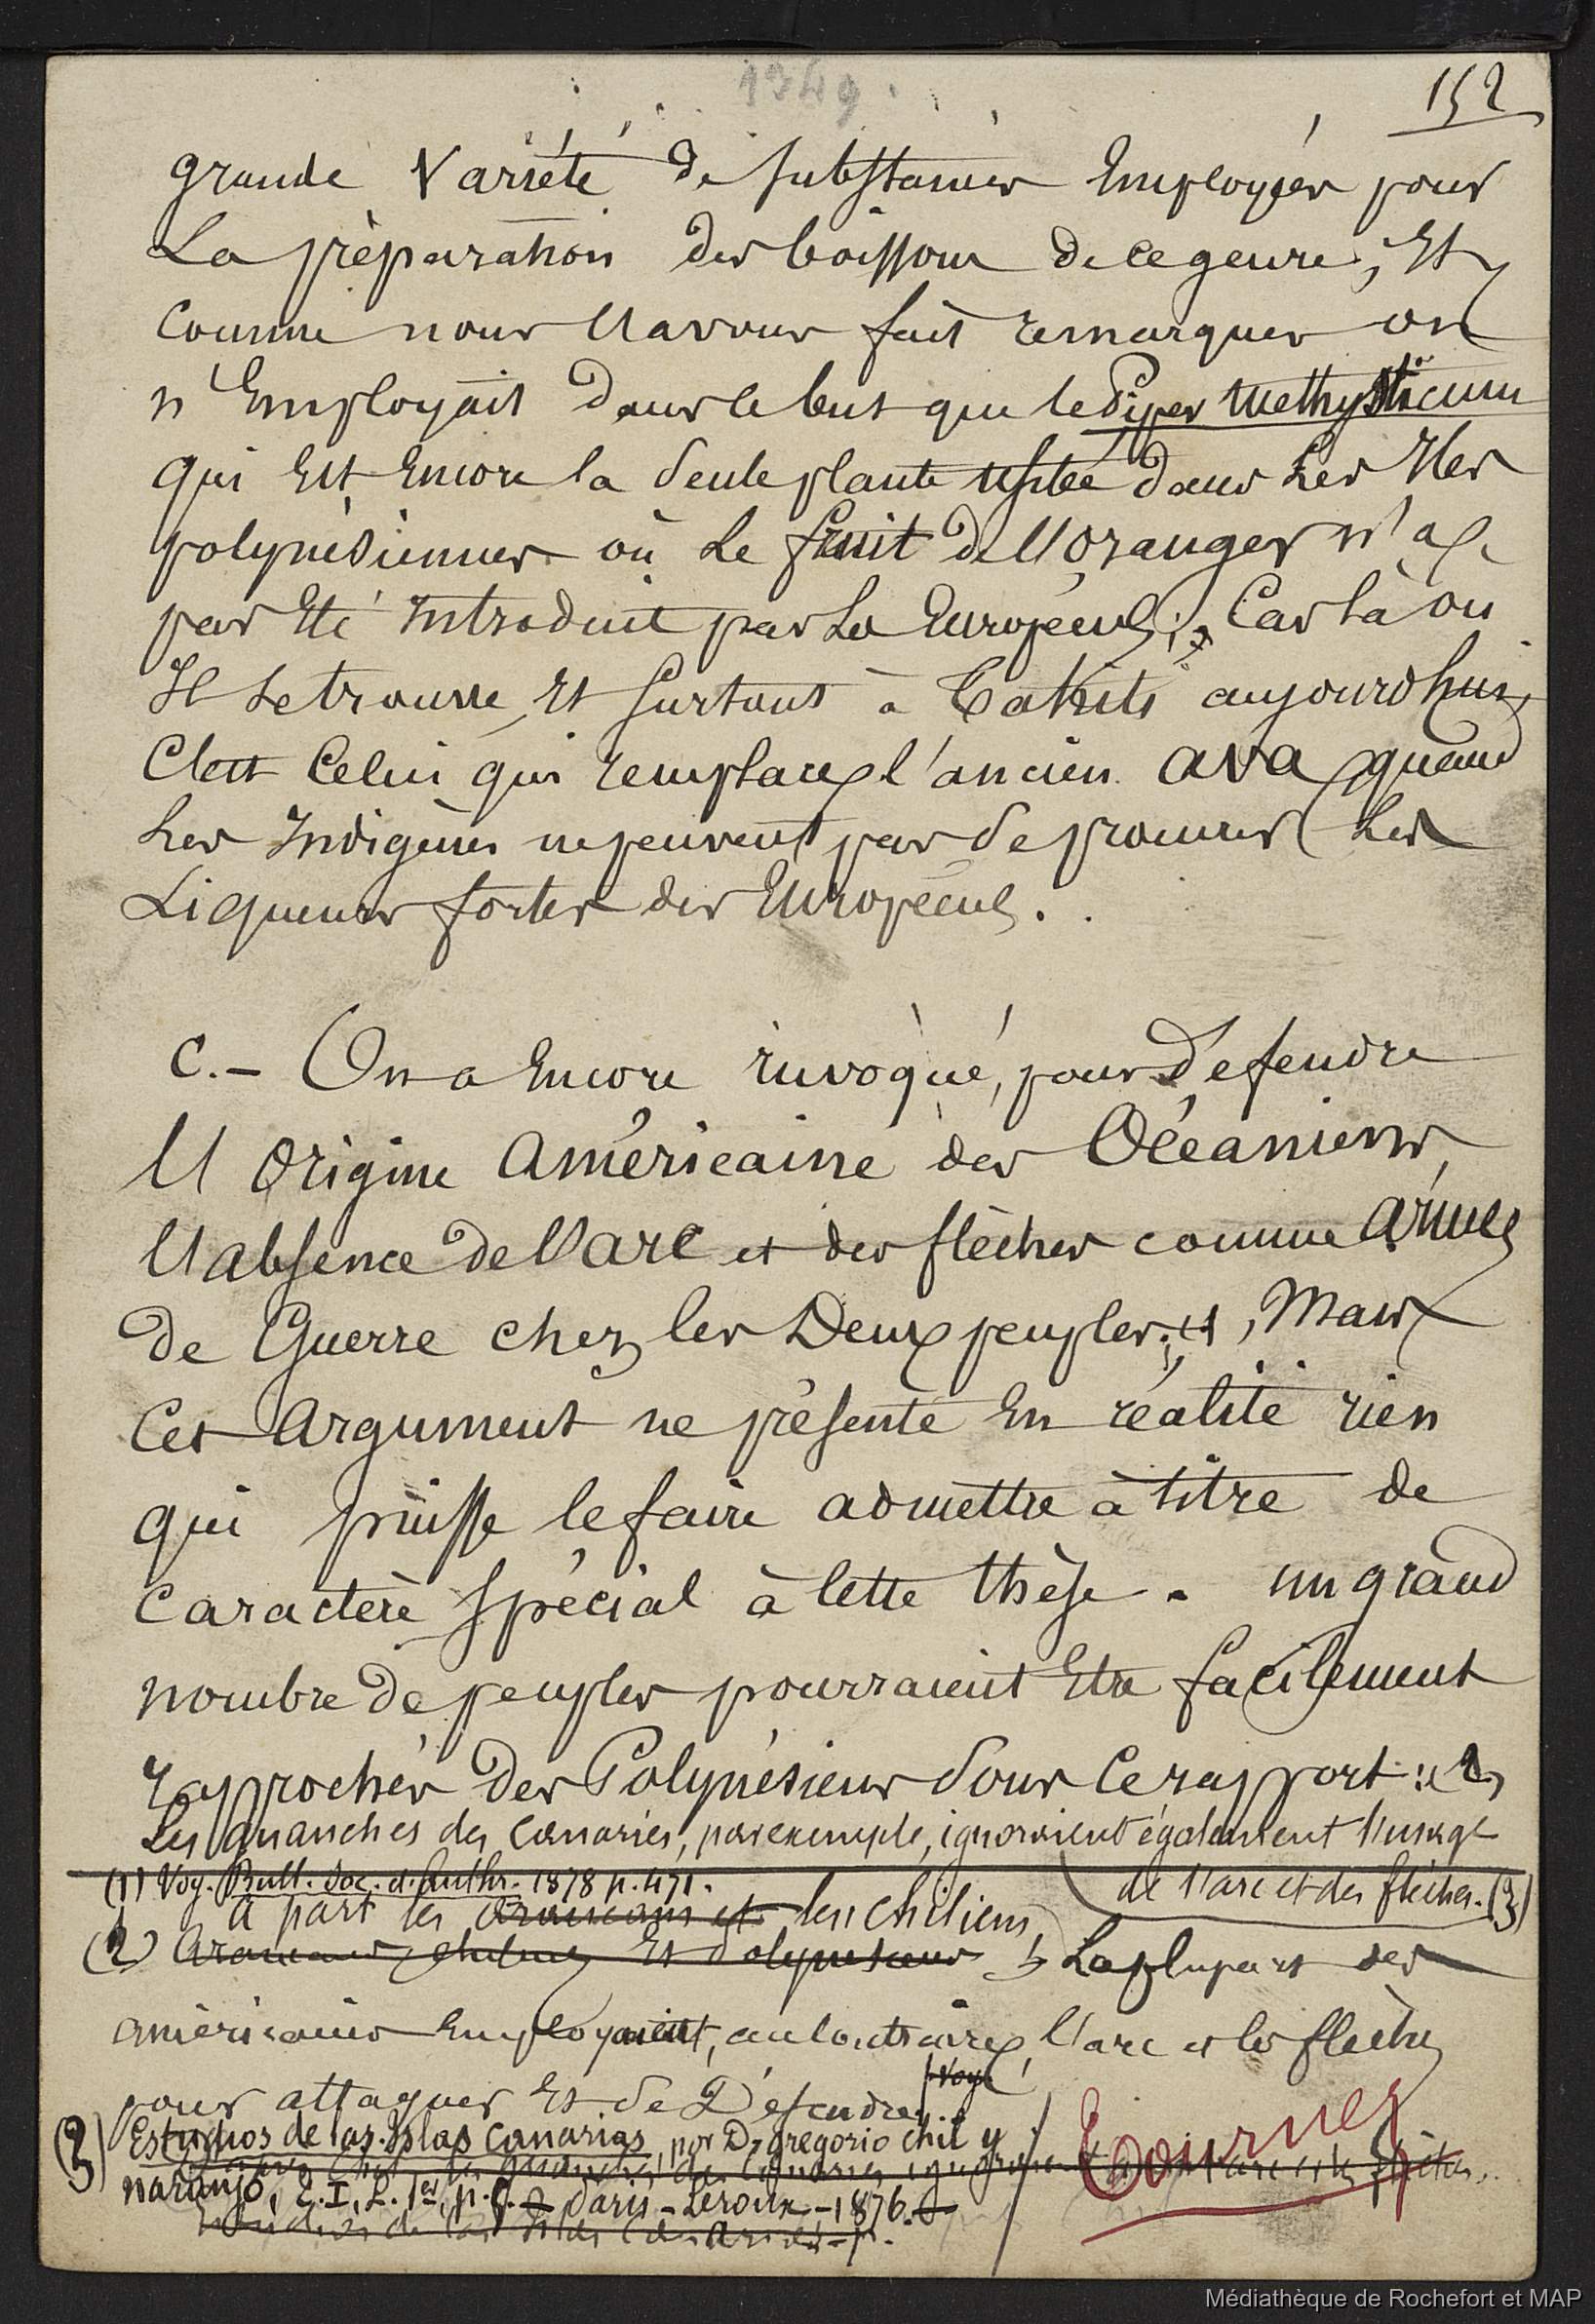 1349.
152
grande Variété de substances Employées pour
La préparation des boissons de ce genre; Et
comme nous l'avons fait remarquer on
n'Employait dans le but que le Piper Methysticum
qui Est Encore la seule plante usitée dans Les Iles
polynésiennes où Le fruit de l'oranger n'a
pas Eté Introduit par Les Européens; Car là où
Il se trouve, Et surtout à Tahiti aujourd'hui,
C'est Celui qui remplace l'ancien ava quand
Les Indigènes ne peuvent pas se procurer Les
Liqueurs fortes des Européens.
C.- On a Encore invoqué, pour Défendre
L'origine Américaine des Océaniens,
l'absence de l'arc et des flèches comme armes
de Guerre chez les Deux peuples; (1), Mais
Cet Argument ne présente En réalité rien
qui puisse le faire admettre à titre de
Caractère spécial à cette thèse. un grand
nombre de peuples pourraient Etre facilement
rapprochés Des Polynésiens sous Ce rapport: (2)
Les guanches des Canaries, par exemple, ignoraient également l'usage
de l'arc et des flèches. (3)
(1) Voy. Bull. Soc. d. Anthr. 1878 p. 471.
à part les araucans et les chiliens,
(2) Araucans Et Polynésiens La plupart des
américains Employaient, au contraire, l'arc et les flèches
pour attaquer Et se Défendre. Voy.
(3) Estudios de las Islas Canarias, por D. gregorio chil y
naranjo, T. I, L. 1er, p. Paris - Leroux - 1876.
Tournez